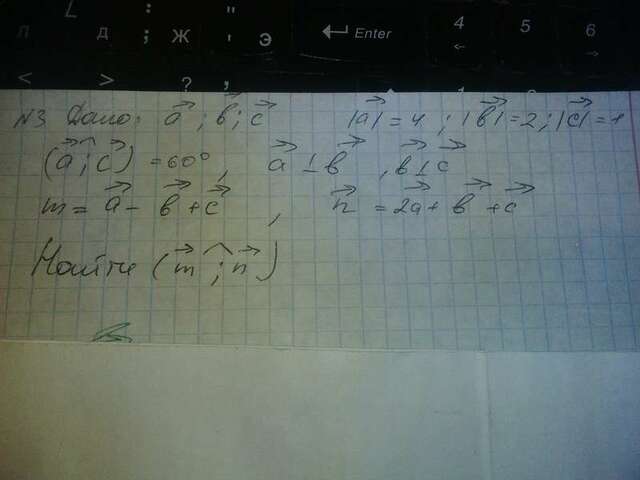 л д ; ж ' э Enter 4 5 6
< > ? ,
№3 Дано: a; в; c |a|=4; |в|=2; |c|=1
(a;c)=60°, a⊥в, в⊥c
m=a-в+c, n=2a+в+c
Найти (m;n)